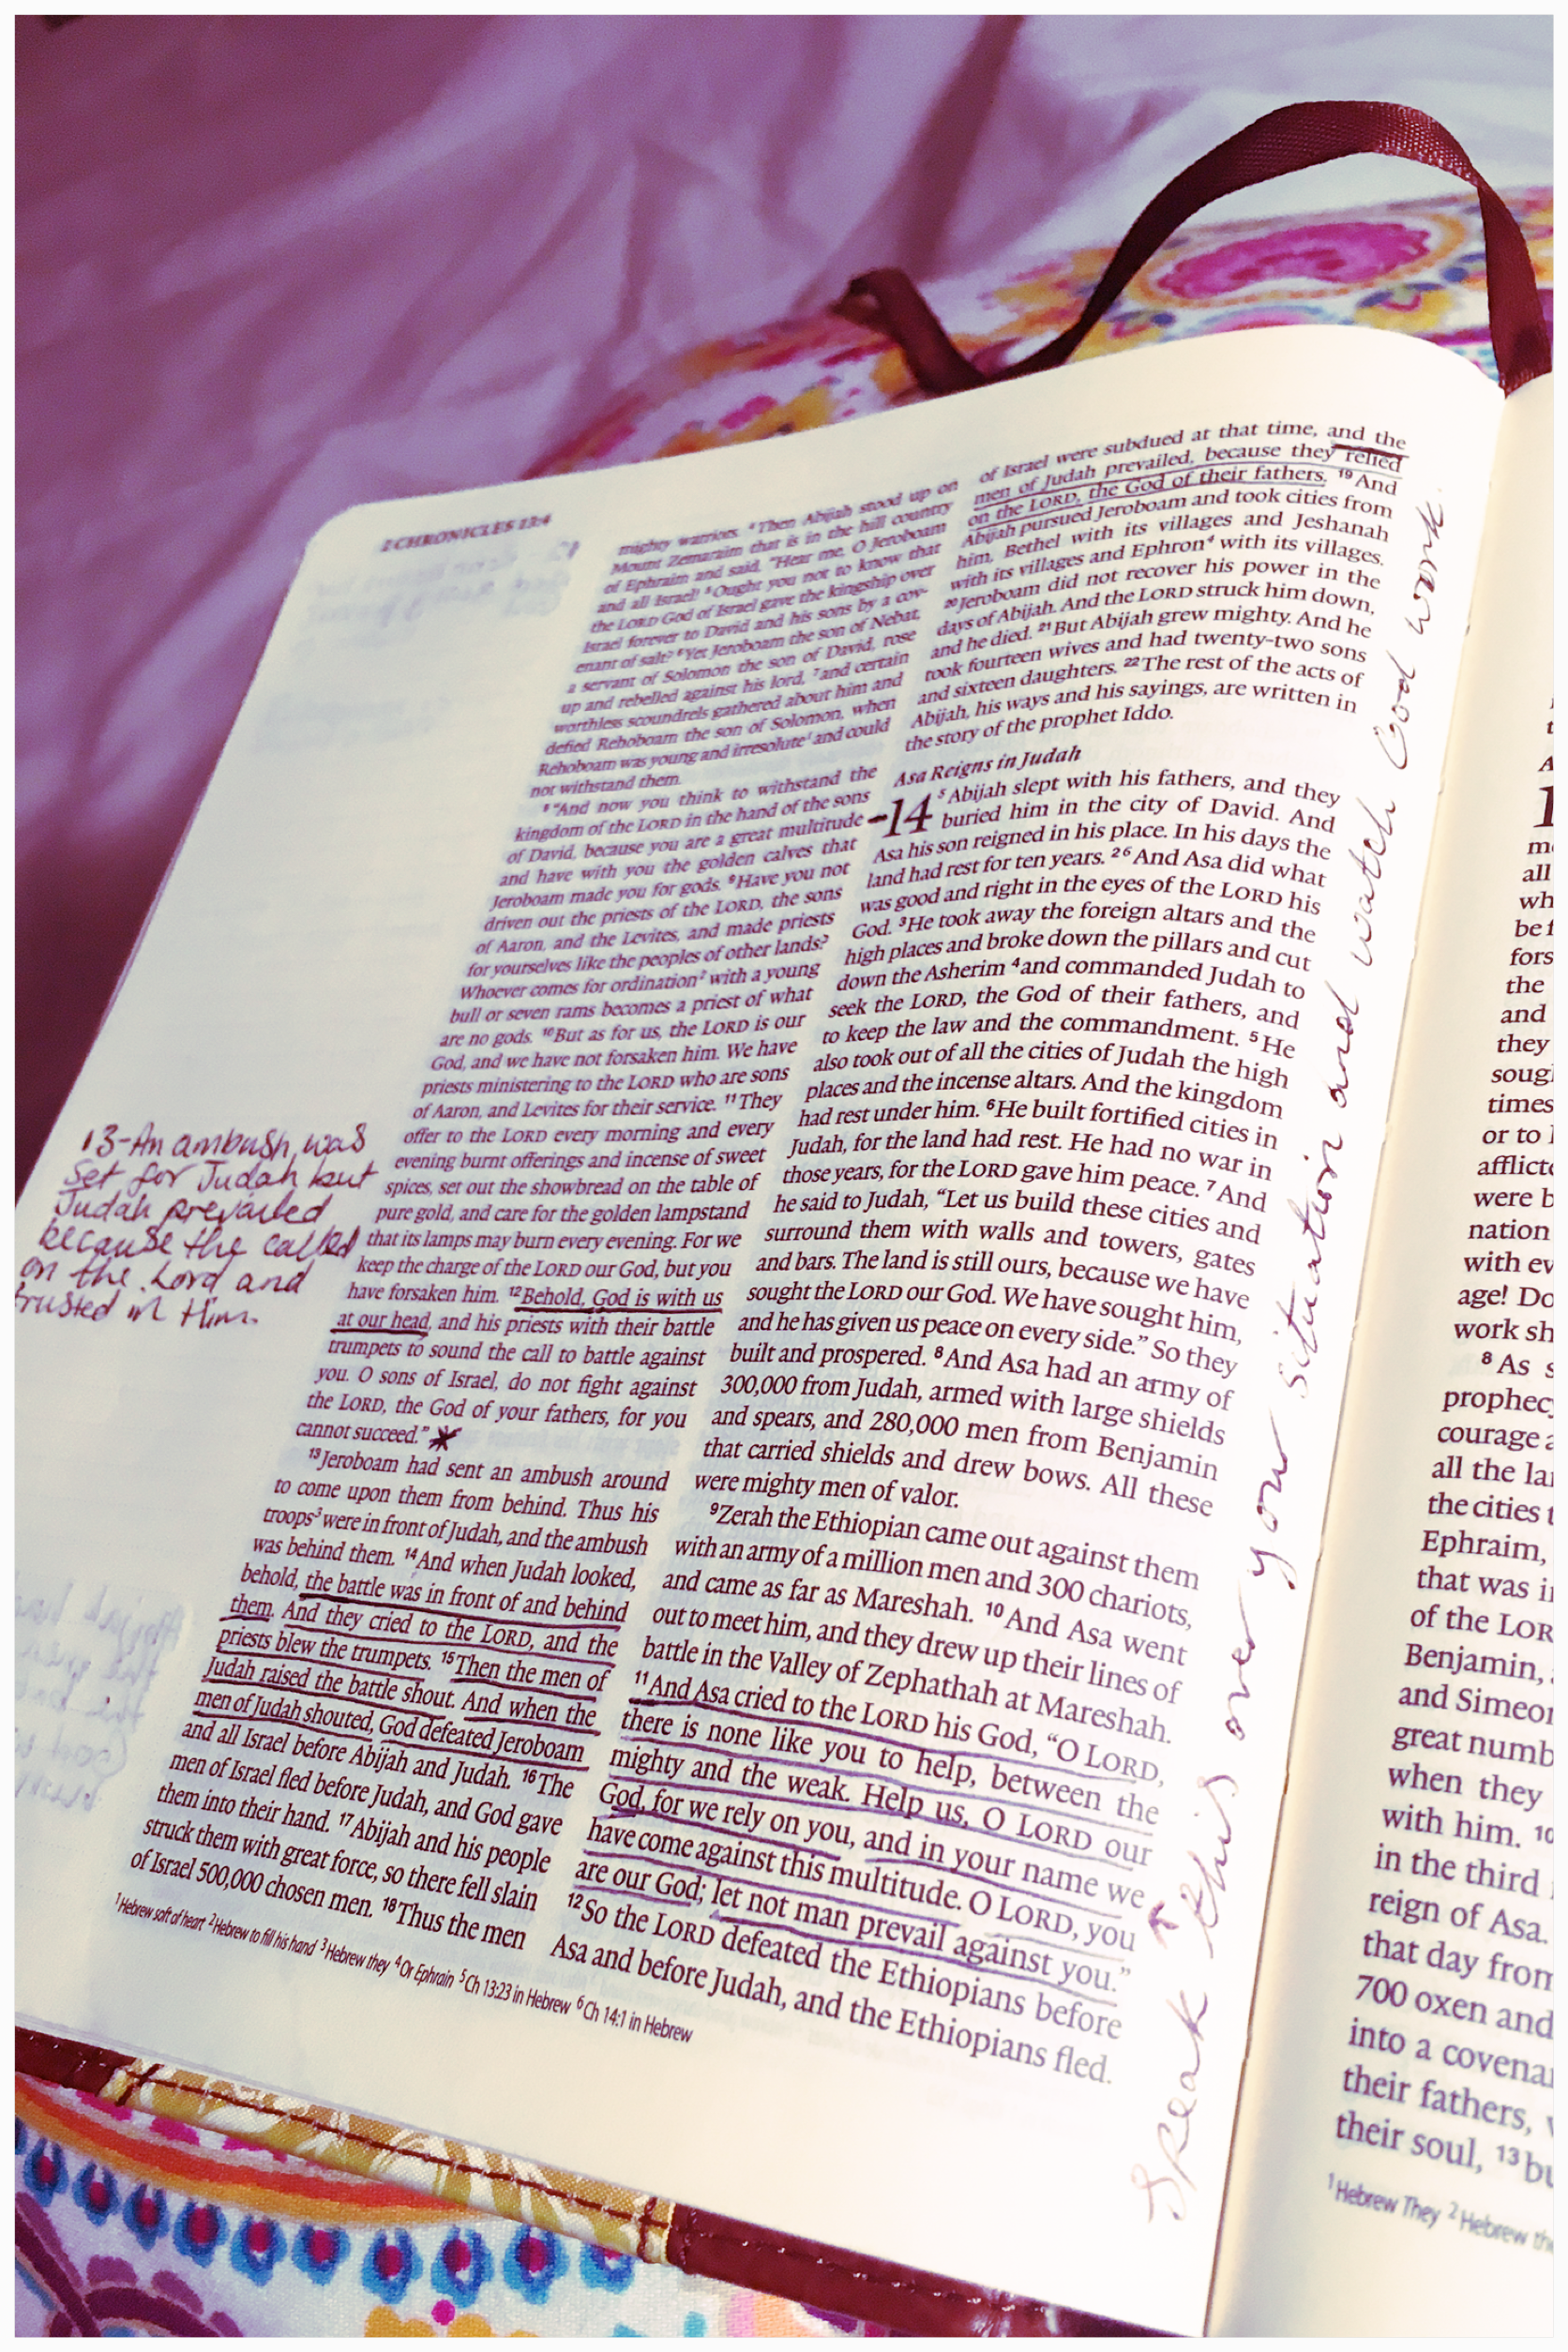 2 CHRONICLES 13:4
mighty warriors. ⁴Then Abijah stood up on
Mount Zemaraim that is in the hill country
of Ephraim and said, "Hear me, O Jeroboam
and all Israel! ⁵Ought you not to know that
the LORD God of Israel gave the kingship over
Israel forever to David and his sons by a cov-
enant of salt? ⁶Yet Jeroboam the son of Nebat,
a servant of Solomon the son of David, rose
up and rebelled against his lord, ⁷and certain
worthless scoundrels gathered about him and
defied Rehoboam the son of Solomon, when
Rehoboam was young and irresolute¹ and could
not withstand them.
⁸"And now you think to withstand the
kingdom of the LORD in the hand of the sons
of David, because you are a great multitude
and have with you the golden calves that
Jeroboam made you for gods. ⁹Have you not
driven out the priests of the LORD, the sons
of Aaron, and the Levites, and made priests
for yourselves like the peoples of other lands?
Whoever comes for ordination² with a young
bull or seven rams becomes a priest of what
are no gods. ¹⁰But as for us, the LORD is our
God, and we have not forsaken him. We have
priests ministering to the LORD who are sons
of Aaron, and Levites for their service. ¹¹They
offer to the LORD every morning and every
evening burnt offerings and incense of sweet
spices, set out the showbread on the table of
pure gold, and care for the golden lampstand
that its lamps may burn every evening. For we
keep the charge of the LORD our God, but you
have forsaken him. ¹²Behold, God is with us
at our head, and his priests with their battle
trumpets to sound the call to battle against
you. O sons of Israel, do not fight against
the LORD, the God of your fathers, for you
cannot succeed."
¹³Jeroboam had sent an ambush around
to come upon them from behind. Thus his
troops³ were in front of Judah, and the ambush
was behind them. ¹⁴And when Judah looked,
behold, the battle was in front of and behind
them. And they cried to the LORD, and the
priests blew the trumpets. ¹⁵Then the men of
Judah raised the battle shout. And when the
men of Judah shouted, God defeated Jeroboam
and all Israel before Abijah and Judah. ¹⁶The
men of Israel fled before Judah, and God gave
them into their hand. ¹⁷Abijah and his people
struck them with great force, so there fell slain
of Israel 500,000 chosen men. ¹⁸Thus the men
13-An ambush was
set for Judah but
Judah prevailed
because the called
on the Lord and
trusted in Him.
of Israel were subdued at that time, and the
men of Judah prevailed, because they relied
on the LORD, the God of their fathers. ¹⁹And
Abijah pursued Jeroboam and took cities from
him, Bethel with its villages and Jeshanah
with its villages and Ephron⁴ with its villages.
²⁰Jeroboam did not recover his power in the
days of Abijah. And the LORD struck him down,
and he died. ²¹But Abijah grew mighty. And he
took fourteen wives and had twenty-two sons
and sixteen daughters. ²²The rest of the acts of
Abijah, his ways and his sayings, are written in
the story of the prophet Iddo.
Asa Reigns in Judah
14 ⁵Abijah slept with his fathers, and they
buried him in the city of David. And
Asa his son reigned in his place. In his days the
land had rest for ten years. ²⁶And Asa did what
was good and right in the eyes of the LORD his
God. ³He took away the foreign altars and the
high places and broke down the pillars and cut
down the Asherim ⁴and commanded Judah to
seek the LORD, the God of their fathers, and
to keep the law and the commandment. ⁵He
also took out of all the cities of Judah the high
places and the incense altars. And the kingdom
had rest under him. ⁶He built fortified cities in
Judah, for the land had rest. He had no war in
those years, for the LORD gave him peace. ⁷And
he said to Judah, "Let us build these cities and
surround them with walls and towers, gates
and bars. The land is still ours, because we have
sought the LORD our God. We have sought him,
and he has given us peace on every side." So they
built and prospered. ⁸And Asa had an army of
300,000 from Judah, armed with large shields
and spears, and 280,000 men from Benjamin
that carried shields and drew bows. All these
were mighty men of valor.
⁹Zerah the Ethiopian came out against them
with an army of a million men and 300 chariots,
and came as far as Mareshah. ¹⁰And Asa went
out to meet him, and they drew up their lines of
battle in the Valley of Zephathah at Mareshah.
¹¹And Asa cried to the LORD his God, "O LORD,
there is none like you to help, between the
mighty and the weak. Help us, O LORD our
God, for we rely on you, and in your name we
have come against this multitude. O LORD, you
are our God; let not man prevail against you."
¹²So the LORD defeated the Ethiopians before
Asa and before Judah, and the Ethiopians fled.
¹Hebrew soft of heart ²Hebrew to fill his hand ³Hebrew they ⁴Or Ephrain ⁵Ch 13:23 in Hebrew ⁶Ch 14:1 in Hebrew
Speak this over your situation and watch God work.
all
the
and
they
times
or to
were b
nation
with ev
age! Do
work sh
⁸As s
prophec
courage a
all the la
the cities t
Ephraim,
that was i
of the LOR
Benjamin,
and Simeo
great numb
when they
with him. ¹⁰
in the third
reign of Asa.
that day from
700 oxen and
into a covena
their fathers,
their soul, ¹³bu
¹Hebrew They ²Hebrew the